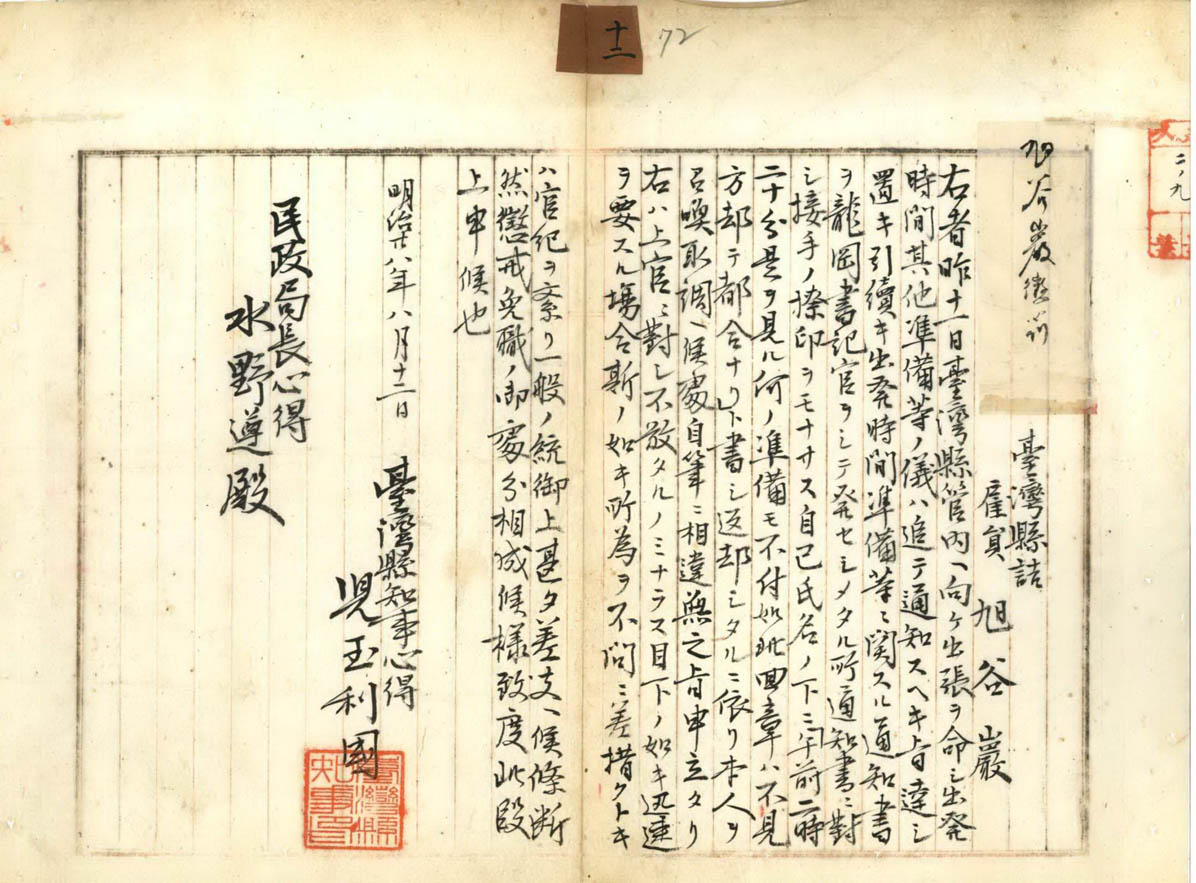 十二
72
二ノ九
旭谷巌懲罰
臺灣縣詰
雇員 旭谷巖
右者昨十一日臺灣縣管内ヘ向ケ出張ヲ命シ出発
時間其他準備等ノ儀ハ追テ通知スヘキ旨達シ
置キ引續キ出発時間準備等ニ関スル通知書
ヲ龍岡書記官ヲシテ発セシメタル所通知書ニ對
シ接手ノ捺印ヲモナサス自己氏名ノ下ニ午前二時
二十分是ヲ見ル何ノ準備モ不付如此回章ハ不見
方却テ都合ナリト書シ返却シタルニ依リ本人ヲ
召喚取調ヘ候處自筆ニ相違無之旨申立タリ
右ハ上官ニ對シ不敬タルノミナラス目下ノ如キ迅速
ヲ要スル場合斯ノ如キ所為ヲ不問ニ差措クトキ
ハ官紀ヲ紊リ一般ノ統御上甚タ差支ヘ候條断
然懲戒免職ノ御處分相成候様致度此段
上申候也
明治廿八年八月十二日
臺灣縣知事心得
児玉利國
民政局長心得
水野遵殿